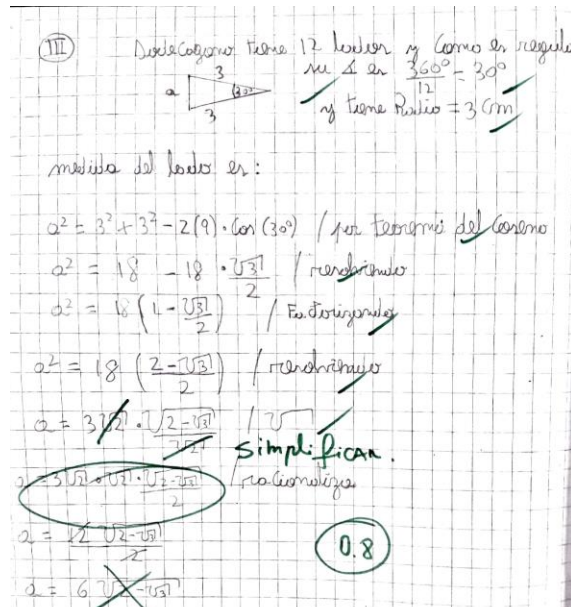 III
Dodecágono tiene 12 lados y como es regular
su ∡ es 360°/12 = 30°
a 3 30° 3
y tiene Radio = 3 cm
medida del lado es:
a² = 3² + 3² - 2(9) · Cos (30°) / por teorema del Coseno
a² = 18 - 18 · √3/2 / resolviendo
a² = 18 (1 - √3/2) / Factorizando
a² = 18 ((2 - √3)/2) / resolviendo
a = 3√2 · √(2-√3)/√2 / √
Simplificar.
a = 3√2 · √2 · √(2-√3)/2 / racionaliza
a = 12 √(2-√3)/2
0.8
a = 6 √(2-√3)